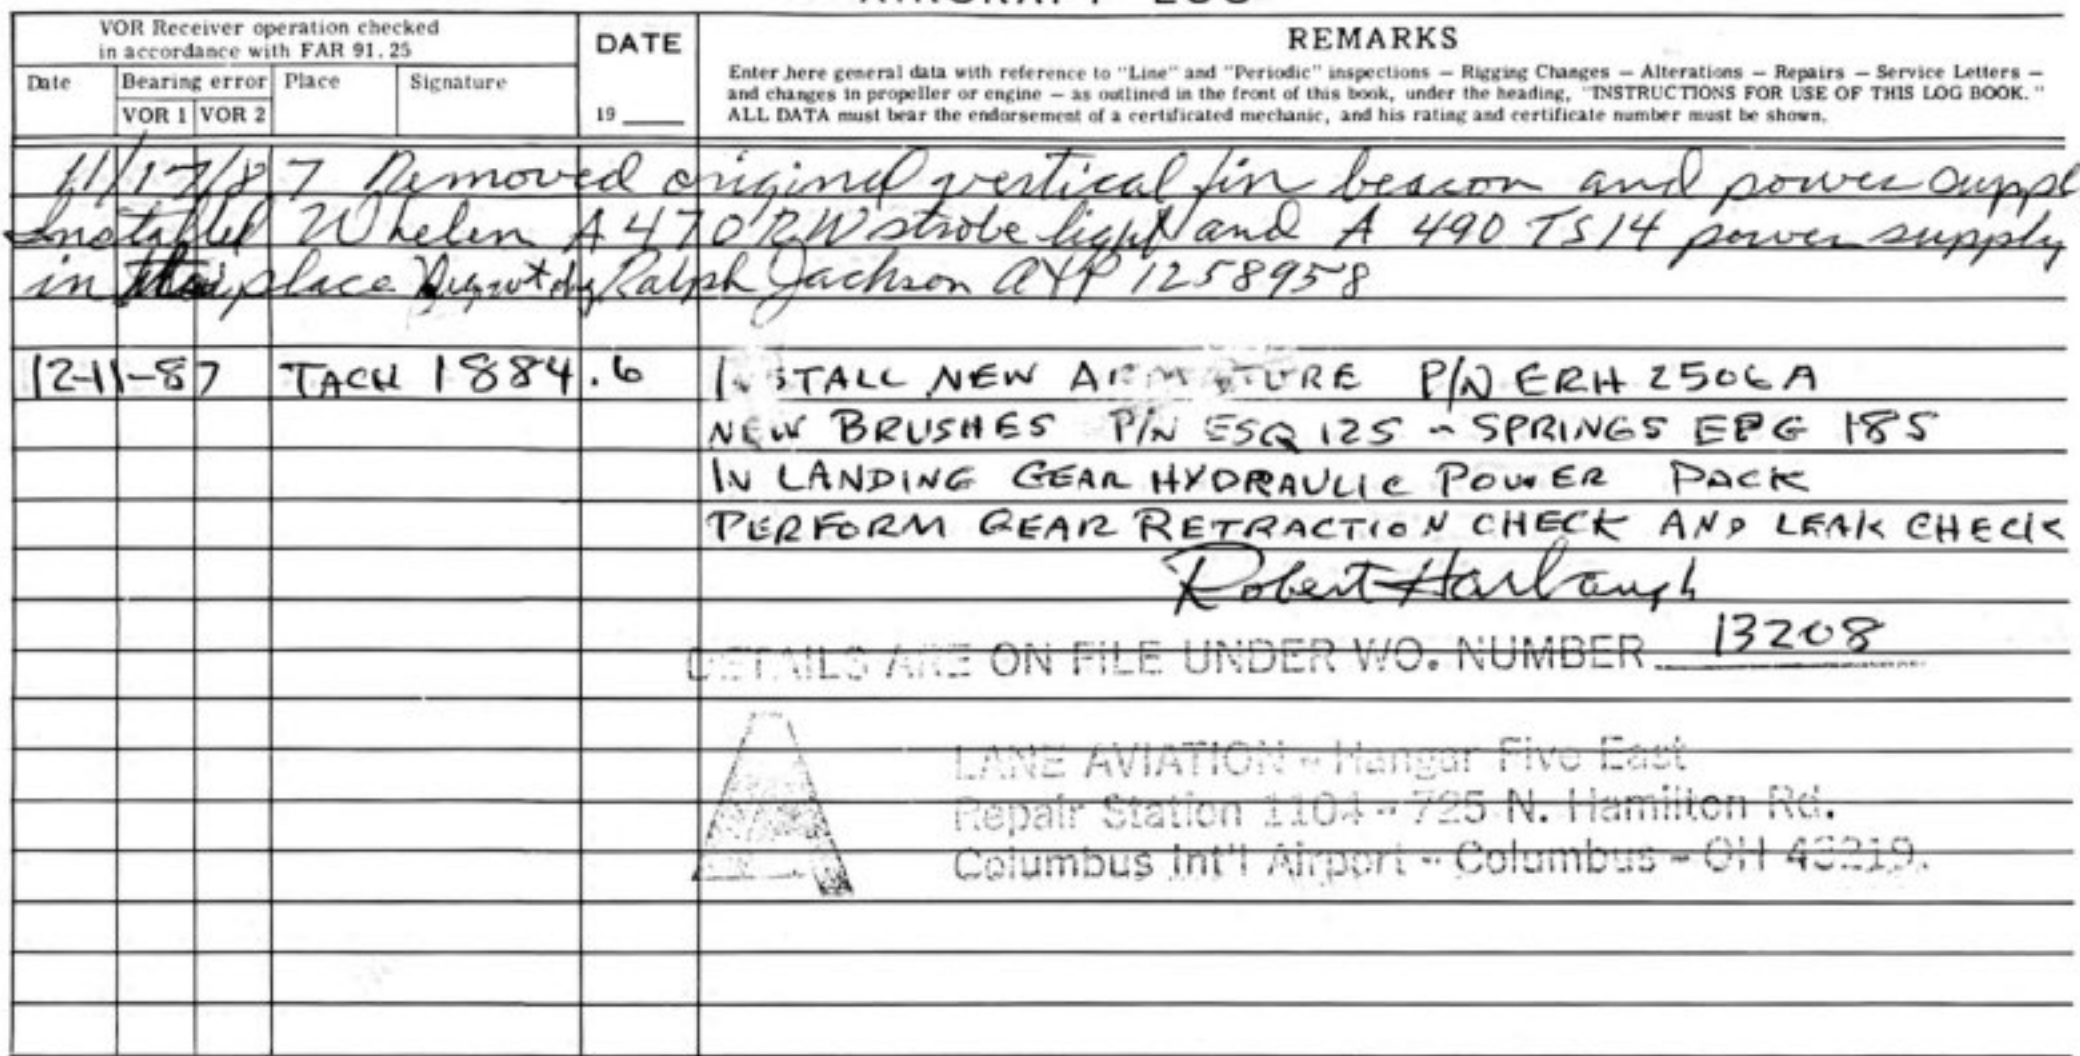 AIRCRAFT LOG
VOR Receiver operation checked
in accordance with FAR 91.25
DATE
REMARKS
Date
Bearing error
Place
Signature
Enter here general data with reference to "Line" and "Periodic" inspections — Rigging Changes — Alterations — Repairs — Service Letters —
and changes in propeller or engine — as outlined in the front of this book, under the heading, "INSTRUCTIONS FOR USE OF THIS LOG BOOK."
VOR 1
VOR 2
19
ALL DATA must bear the endorsement of a certificated mechanic, and his rating and certificate number must be shown.
11/17/87 Removed original vertical fin beacon and power suppl
Installed Whelen A470RW strobe light and A 490 TS14 power supply
in place Ralph Jackson A&P 1258958
12-11-87 TACH 1884.6 INSTALL NEW ARMATURE P/N ERH 2506A
NEW BRUSHES P/N ESQ 125 - SPRINGS EPG 185
IN LANDING GEAR HYDRAULIC POWER PACK
PERFORM GEAR RETRACTION CHECK AND LEAK CHECK
Robert Harbaugh
DETAILS ARE ON FILE UNDER WO. NUMBER 13208
LANE AVIATION - Hangar Five East
Repair Station 1104 - 725 N. Hamilton Rd.
Columbus Int'l Airport - Columbus - OH 43219.